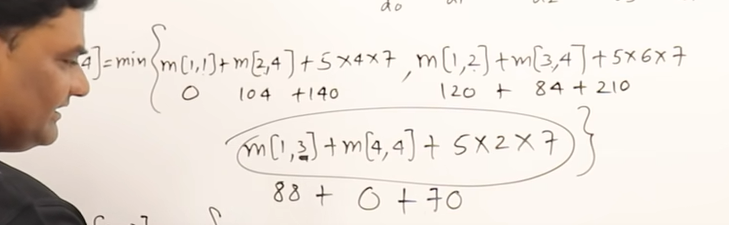 do
4]=min{m[1,1]+m[2,4]+5×4×7, m[1,2]+m[3,4]+5×6×7
0 104 +140 120 + 84 + 210
m[1,3]+m[4,4]+ 5×2×7}
88 + 0 +70